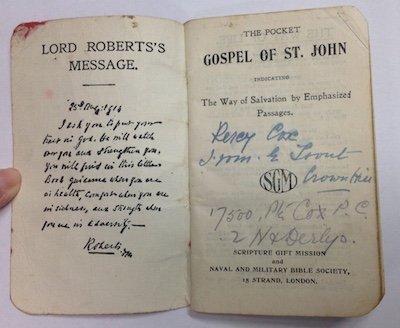 LORD ROBERTS'S
MESSAGE.
25th Aug. 1914
I ask you to put your
trust in God. He will watch
over you and strengthen you.
You will find in this little
Book guidance when you are
in health, comfort when you are
in sickness, and strength when
you are in adversity.—
Roberts
THE POCKET
GOSPEL OF ST. JOHN
INDICATING
The Way of Salvation by Emphasized
Passages.
Percy Cox
From E Trout
SGM
Crownhill
17500, Pte Cox P. C.
2 N & Derbys.
SCRIPTURE GIFT MISSION
and
NAVAL AND MILITARY BIBLE SOCIETY,
15 STRAND, LONDON.